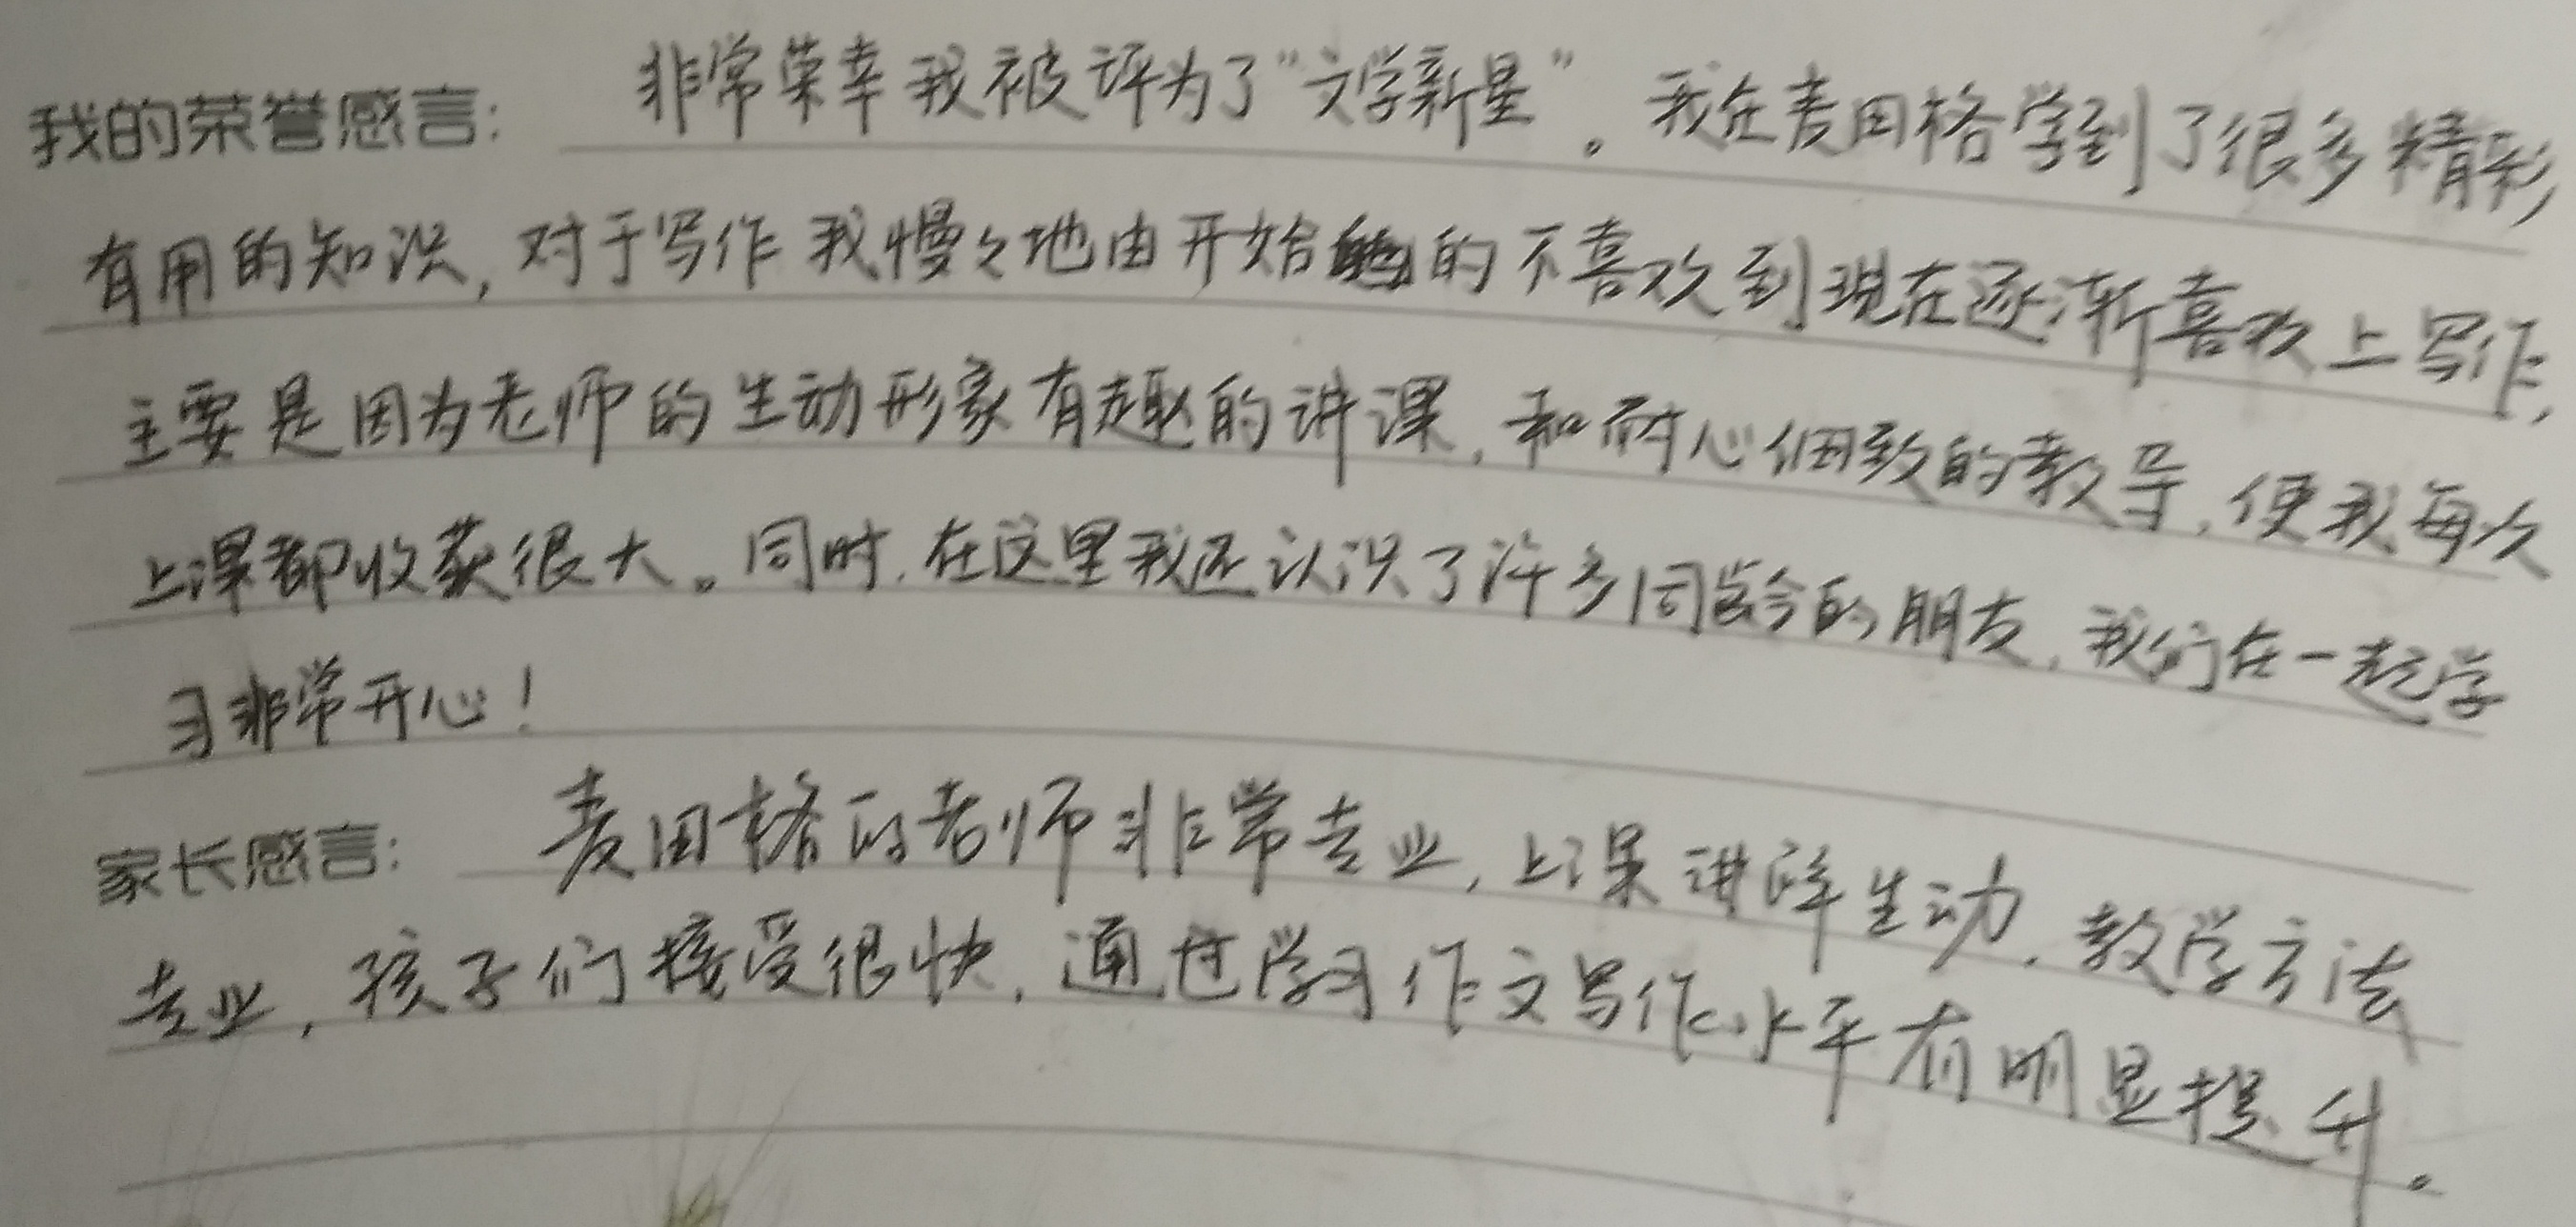 我的荣誉感言： 非常荣幸我被评为了“文学新星”。我在麦田格学到了很多精彩
有用的知识，对于写作我慢々地由开始的不喜欢到现在逐渐喜欢上写作，
主要是因为老师的生动形象有趣的讲课，和耐心细致的教导，使我每次
上课都收获很大。同时，在这里我还认识了许多同龄的朋友，我们在一起学
习非常开心！
家长感言： 麦田格的老师非常专业，上课讲解生动，教学方法
专业，孩子们接受很快，通过学习作文写作水平有明显提升。